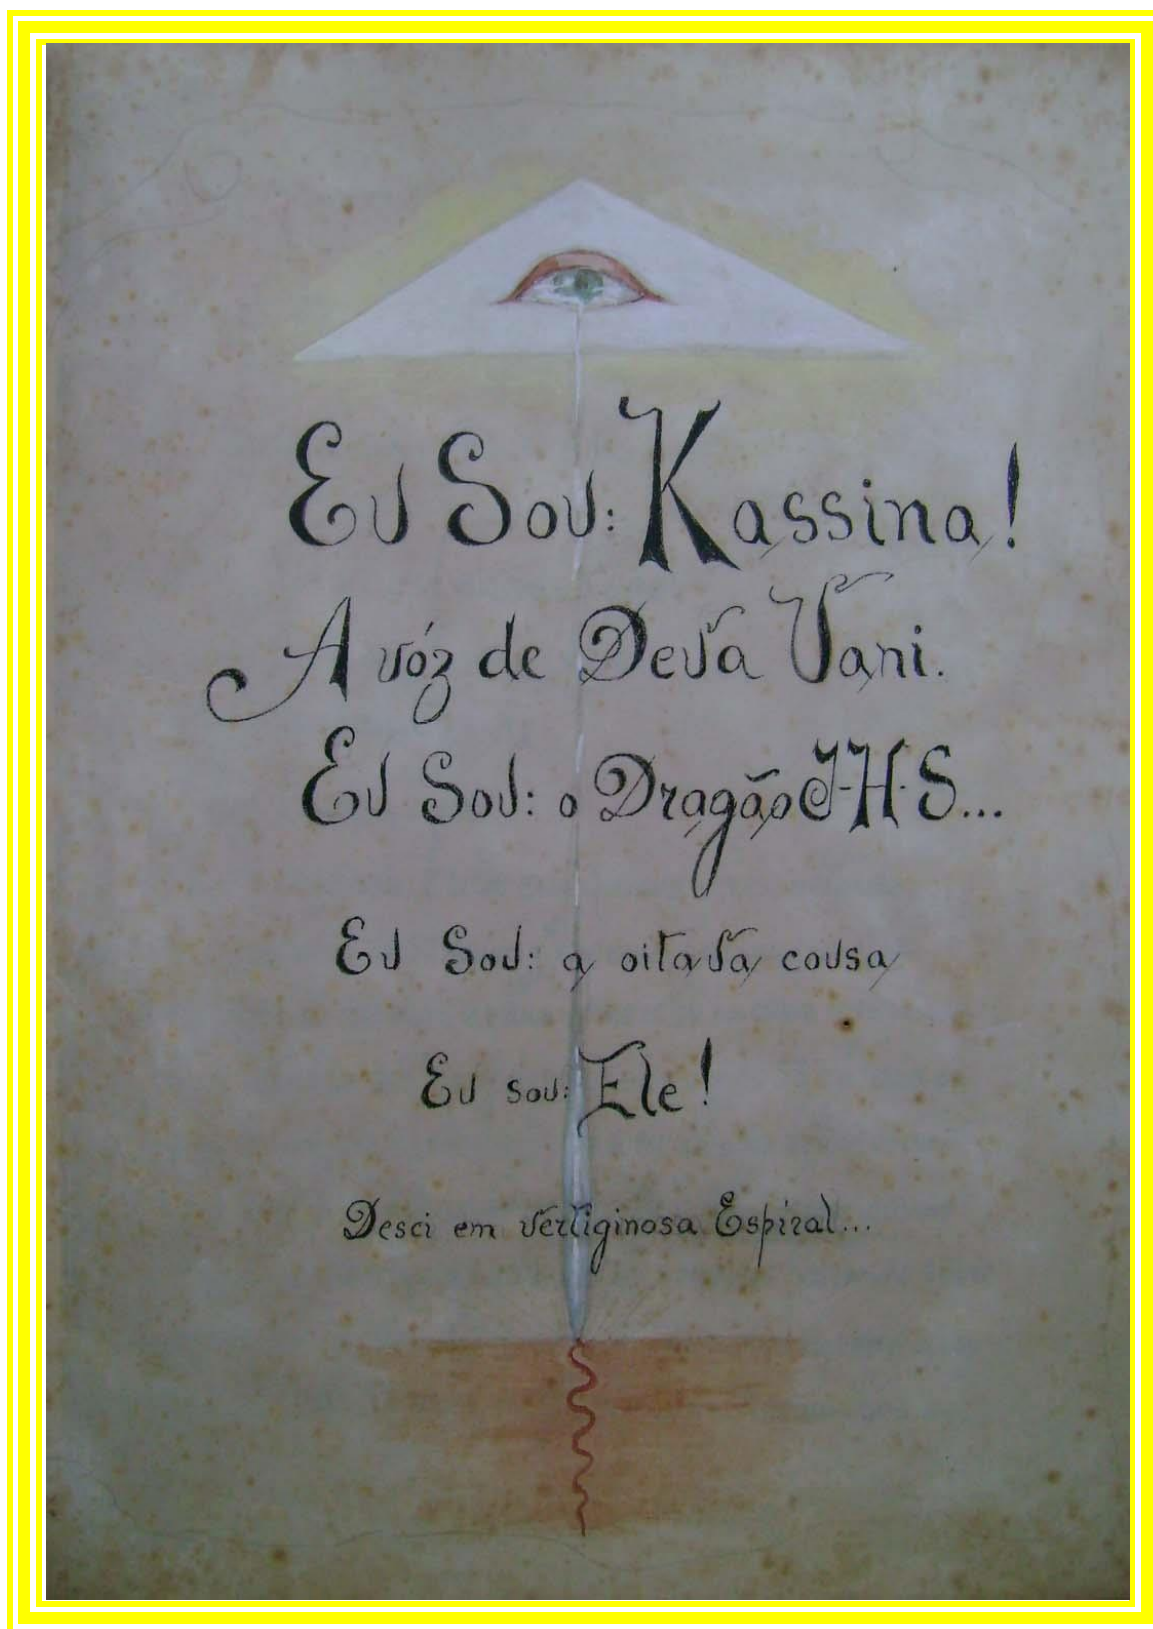 Eu Sou: Kassina!
A vóz de Deva Vani.
Eu Sou: o Dragão J-H-S...
Eu Sou: a oitava cousa
Eu sou: Ele!
Desci em vertiginosa Espiral...